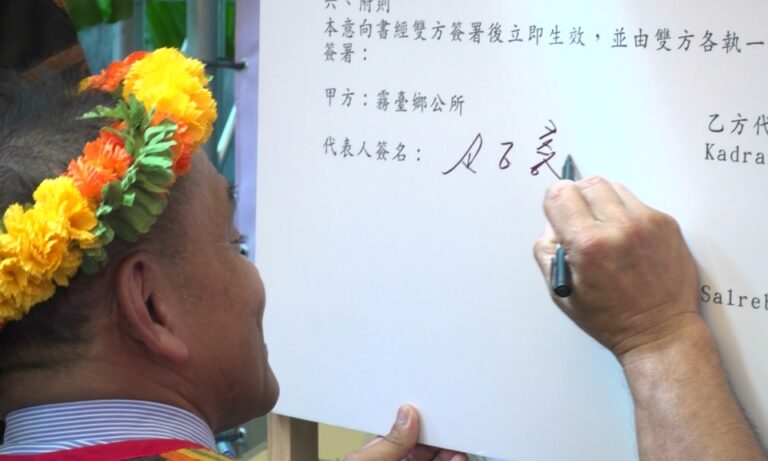 六、附則
本意向書經雙方簽署後立即生效，並由雙方各執一
簽署：
甲方：霧臺鄉公所
代表人簽名：
乙方代
Kadra
Salreb